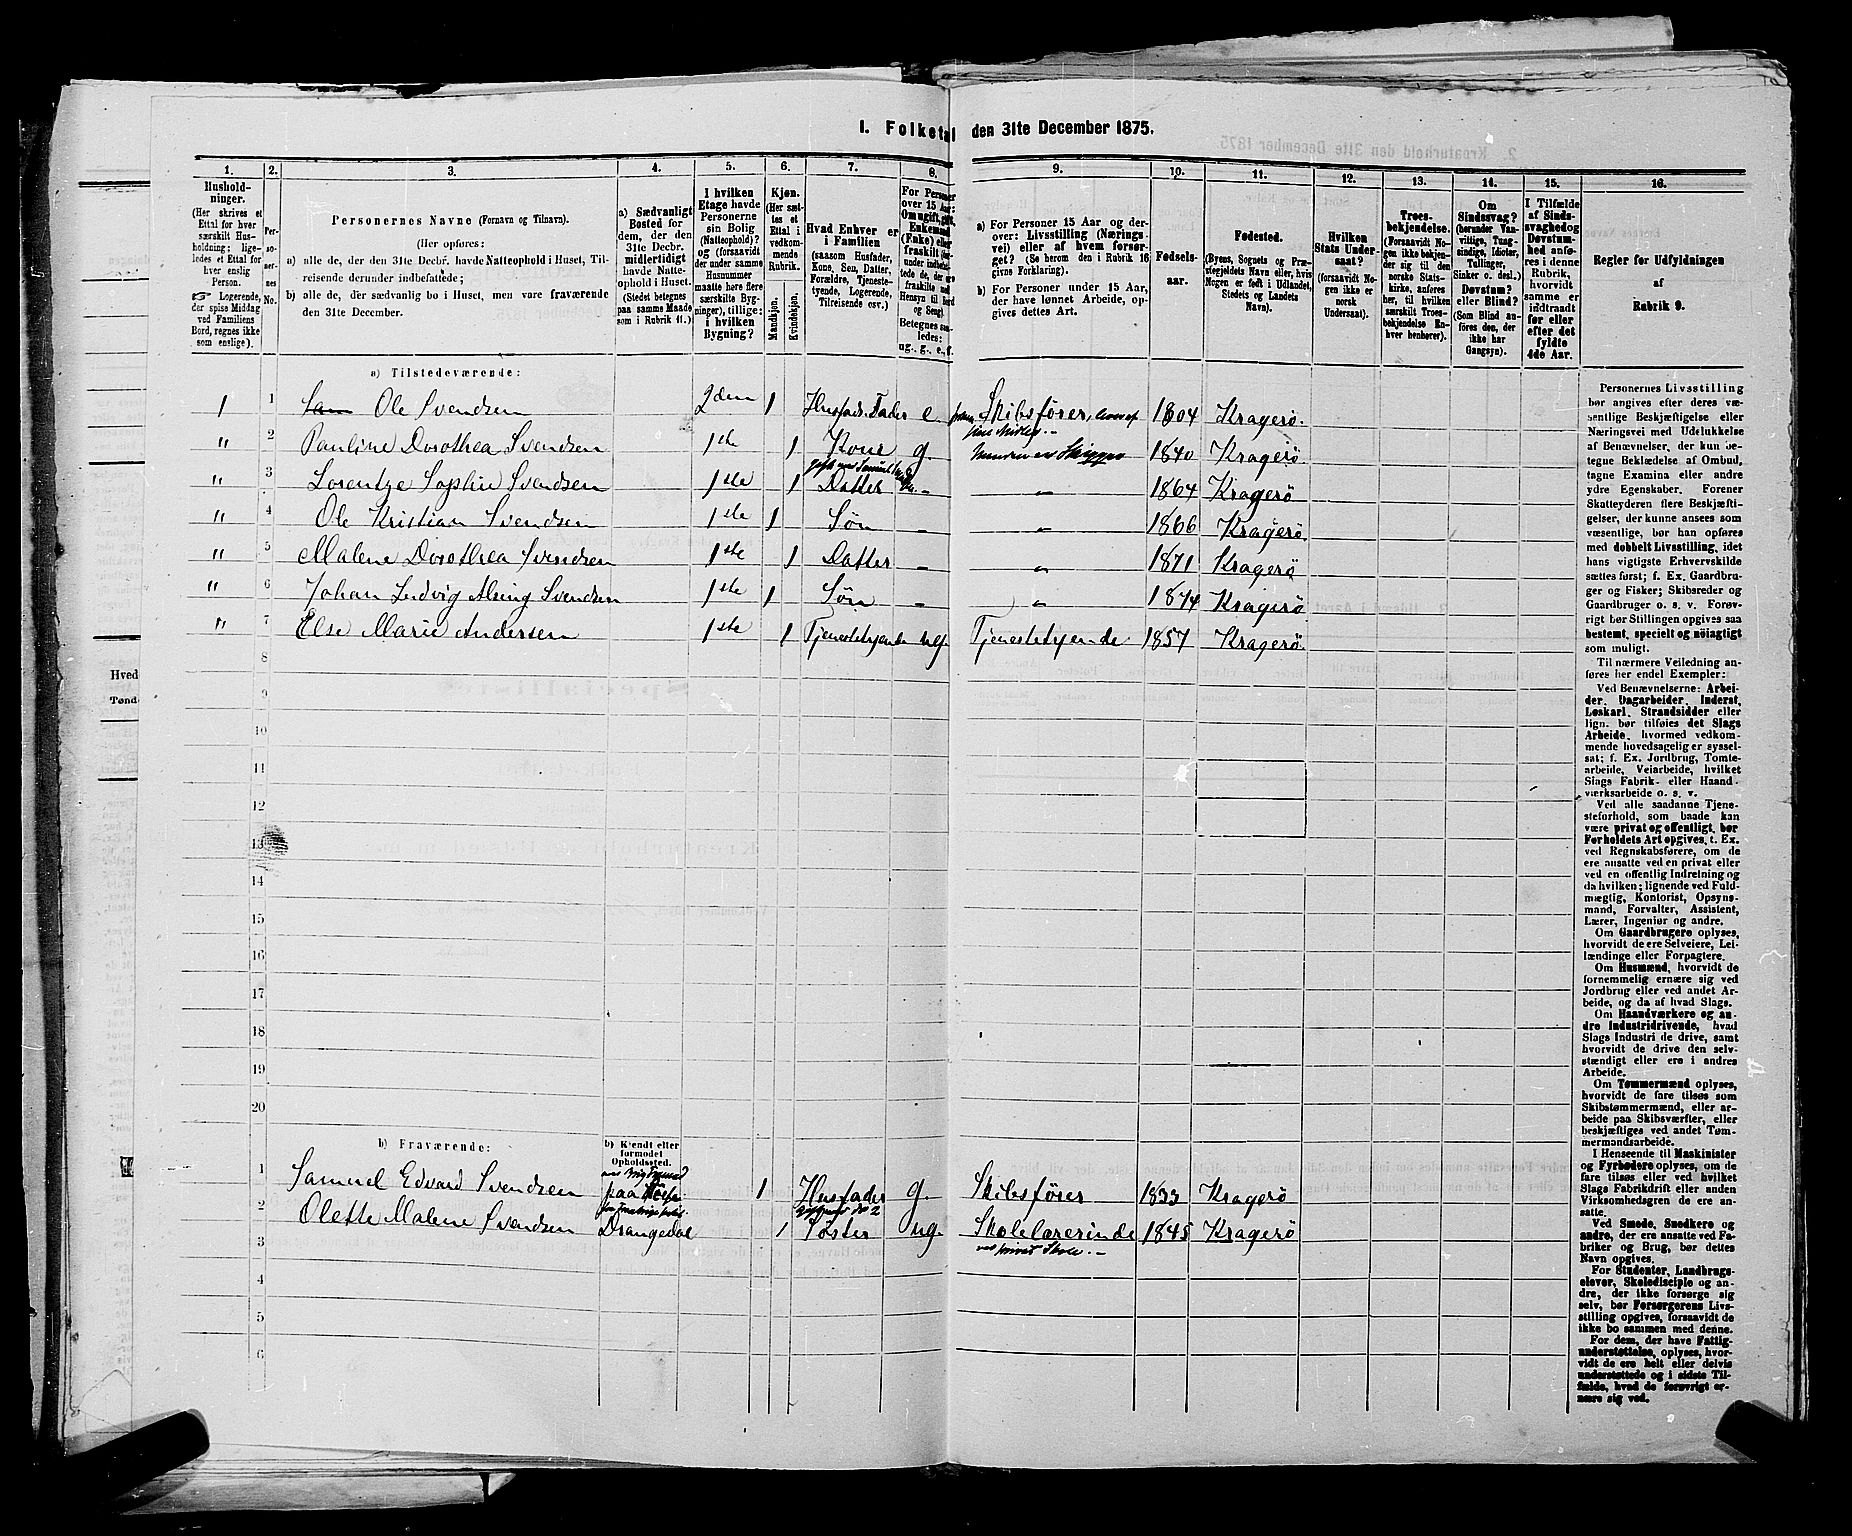 I. Folketal den 31te December 1875.
1.
Hushold-
ninger.
(Her skrives et
Ettal for hver
særskilt Hus-
holdning; lige-
ledes et Ettal for
hver enslig
Person.
☞ Logerende,
der spise Middag
ved Familiens
Bord, regnes ikke
som enslige).
2.
Per-
so-
ner-
nes
No.
3.
Personernes Navne (Fornavn og Tilnavn).
(Her opføres:
a) alle de, der den 31te Decbr. havde Natteophold i Huset, Til-
reisende derunder indbefattede;
b) alle de, der sædvanlig bo i Huset, men vare fraværende
den 31te December.
4.
a) Sædvanligt
Bosted for
dem, der den
31te Decbr.
midlertidigt
havde Natte-
ophold i Huset.
(Stedet betegnes
paa samme Maade
som i Rubrik 11.)
5.
I hvilken
Etage havde
Personerne
sin Bolig
(Natteophold)?
og (forsaavidt
der under samme
Husnummer
maatte høre flere
særskilte Byg-
ninger), tillige:
i hvilken
Bygning?
6.
Kjøn.
(Her sæt-
tes et
Ettal i
vedkom-
mende
Rubrik.
Mandkjøn.
Kvindekjøn.
7.
Hvad Enhver er
i Familien
(saasom Husfader,
Kone, Søn, Datter,
Forældre, Tjeneste-
tyende, Logerende,
Tilreisende osv.)
8.
For Personer
over 15 Aar:
Om ugift, gift,
Enkemand
(Enke) eller
fraskilt
Betegnes saa-
ledes:
ug., g., e., f.
9.
a) For Personer 15 Aar og der-
over: Livsstilling (Nærings-
vei) eller af hvem forsør-
get? (Se herom den i Rubrik 16
givne Forklaring).
b) For Personer under 15 Aar,
der have lønnet Arbeide, op-
gives dettes Art.
10.
Fødsels-
aar.
11.
Fødested.
(Byens, Sognets og Præ-
stegjeldets Navn eller, hvis
Nogen er født i Udlandet,
Stedets og Landets
Navn).
12.
Hvilken
Stats Under-
saat?
(forsaavidt No-
gen ikke er
norsk
Undersaat).
13.
Troes-
bekjendelse.
(Forsaavidt No-
gen ikke bekjen-
der sig til den
norske Stats-
kirke, anføres
her, til hvilken
særskilt Troes-
bekjendelse En-
hver henhører).
14.
Om
Sindssvag?
(herunder Van-
vittige, Tung-
sindige, Idioter,
Tullinger,
Sinker o. desl.)
Døvstum?
eller Blind?
(Som Blind an-
føres den, der
ikke har
Gangsyn).
15.
I Tilfælde
af Sinds-
svaghed og
Døvstum-
hed anfø-
res i denne
Rubrik,
hvorvidt
samme er
indtraadt
før eller
efter det
fyldte
4de Aar.
16.
Regler for Udfyldningen
af
Rubrik 9.
a) Tilstedeværende:
1 1 Ole Svendsen 2den 1 Husfads. Fader e Skibsfører, 1804 Kragerö.
" 2 Pauline Dorothea Svendsen 1ste 1 Kone g. 1840 Kragerö
" 3 Lorentze Sophie Svendsen 1ste 1 Datter - " 1864 Kragerö
" 4 Ole Kristian Svendsen 1ste 1 Søn - " 1866 Kragerö.
" 5 Malene Dorothea Svendsen 1ste 1 Datter - " 1871 Kragerö
" 6 Johan Ludvig Svendsen 1ste 1 Søn - " 1874 Kragerö
" 7 Else Marie Andersen 1ste 1 Tjenestetyende ug. Tjenestetyende 1857 Kragerö.
8
9
10
11
12
13
14
15
16
17
18
19
20
b) Fraværende:
b) Kjendt eller
formodet
Opholdssted.
1 Samuel Edvard Svendsen 1 Husfader g. Skibsfører 1833 Kragerö
2 Olette Malene Svendsen Drangedal 1 Søster ug. Skolelærerinde 1845 Kragerö
3
4
5
6
Personernes Livsstilling
bør angives efter deres væ-
sentlige Beskjæftigelse eller
Næringsvei med Udelukkelse
af Benævnelser, der kun be-
tegne Beklædelse af Ombud,
tagne Examina eller andre
ydre Egenskaber. Forener
Skatteyderen flere Beskjæfti-
gelser, der kunne ansees som
væsentlige, bør han opføres
med dobbelt Livsstilling, idet
hans vigtigste Erhvervskilde
sættes først; f. Ex. Gaardbru-
ger og Fisker; Skibsreder og
Gaardbruger o. s. v. Forøv-
rigt bør Stillingen opgives saa
bestemt, specielt og nöiagtigt
som muligt.
Til nærmere Veiledning an-
føres her endel Exempler:
Ved Benævnelserne: Arbei-
der, Dagarbeider, Inderst,
Løskarl, Strandsidder eller
lign. bør tilføies det Slags
Arbeide, hvormed vedkom-
mende hovedsagelig er syssel-
sat; f. Ex. Jordbrug, Tomte-
arbeide, Veiarbeide, hvilket
Slags Fabrik- eller Haand-
værksarbeide o. s. v.
Ved alle saadanne Tjene-
steforhold, som baade kan
være privat og offentligt, bør
Forholdets Art opgives, t. Ex.
ved Regnskabsførere, om de
ere ansatte ved en privat eller
ved en offentlig Indretning og
da hvilken; lignende ved Fuld-
mægtig, Kontorist, Opsyns-
mand, Forvalter, Assistent,
Lærer, Ingeniør og andre.
Om Gaardbrugere oplyses,
hvorvidt de ere Selveiere, Lei-
lændinge eller Forpagtere.
Om Husmænd, hvorvidt de
fornemmelig ernære sig ved
Jordbrug eller ved andet Ar-
beide, og da af hvad Slags.
Om Haandværkere og an-
dre Industridrivende, hvad
Slags Industri de drive, samt
hvorvidt de drive den selv-
stændigt eller ere i andres
Arbeide.
Om Tømmermænd oplyses,
hvorvidt de fare tilsøs som
Skibstømmermænd, eller ar-
beide paa Skibsværfter, eller
beskjæftiges ved andet Tøm-
mermandsarbeide.
I Henseende til Maskinister
og Fyrbødere oplyses, om de
fare tilsøs eller ved hvilket
Slags Fabrikdrift eller anden
Virksomhedsgren de ere an-
satte.
Ved Smede, Snedkere og
andre, der ere ansatte ved Fa-
briker og Brug, bør dettes
Navn opgives.
For Studenter, Landbrugs-
elever, Skoledisciple og an-
dre, der ikke forsørge sig
selv, bør Forsørgerens Livs-
stilling opgives, forsaavidt de
ikke bo sammen med denne.
For dem, der have Fattig-
understøttelse, oplyses, hvor-
vidt de ere helt eller delvis
understøttede og i sidste Til-
fælde, hvad de forøvrigt er-
nære sig ved.